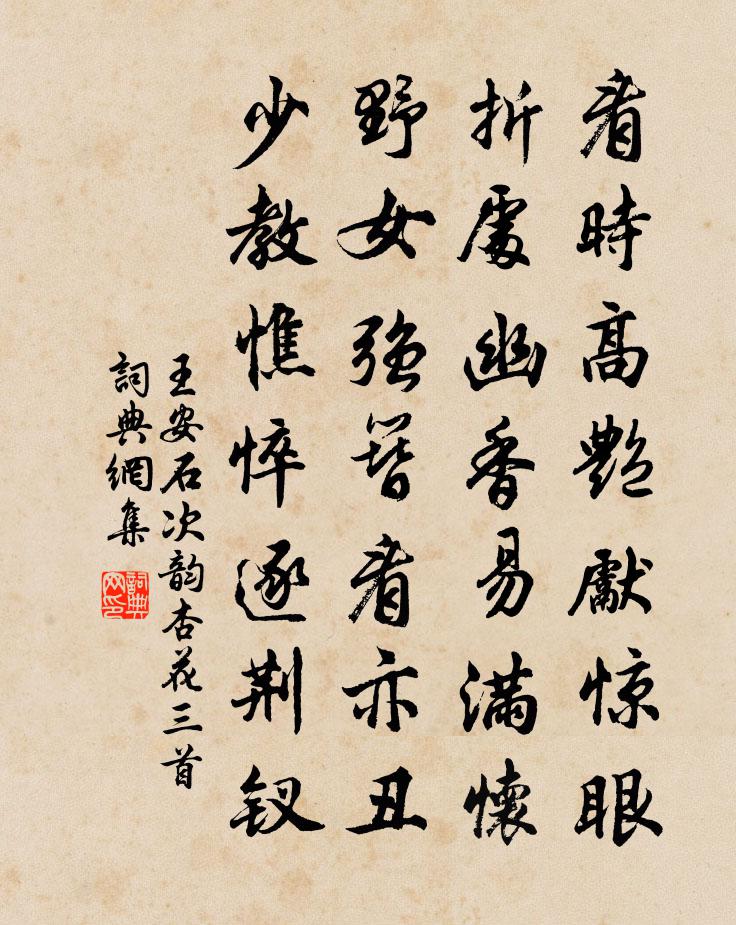 看時高艷獻惊眼
折處幽香易满懷
野女强簪看亦丑
少教憔悴逐荆钗
王安石次韵杏花三首
詞典網集
詞典网印